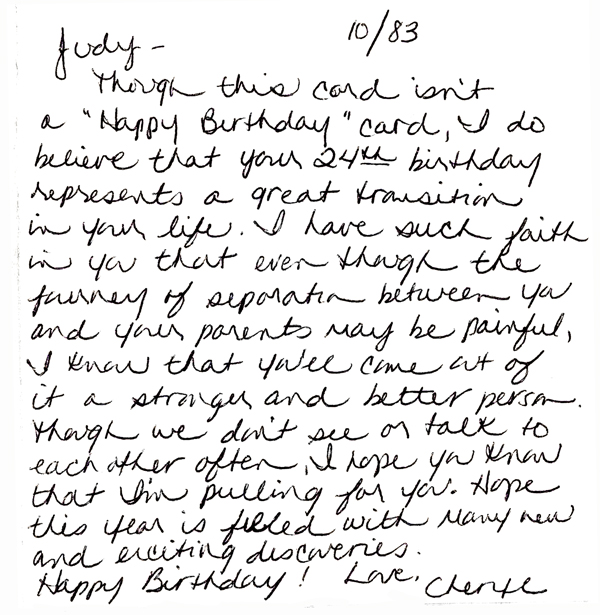 10/83
Judy -
Though this card isn't
a "Happy Birthday" card, I do
believe that your 24th birthday
represents a great transition
in your life. I have such faith
in you that even though the
journey of separation between you
and your parents may be painful,
I know that you'll come out of
it a stronger and better person.
Though we don't see or talk to
each other often, I hope you know
that I'm pulling for you. Hope
this year is filled with many new
and exciting discoveries.
Happy Birthday! Love, Cheryl